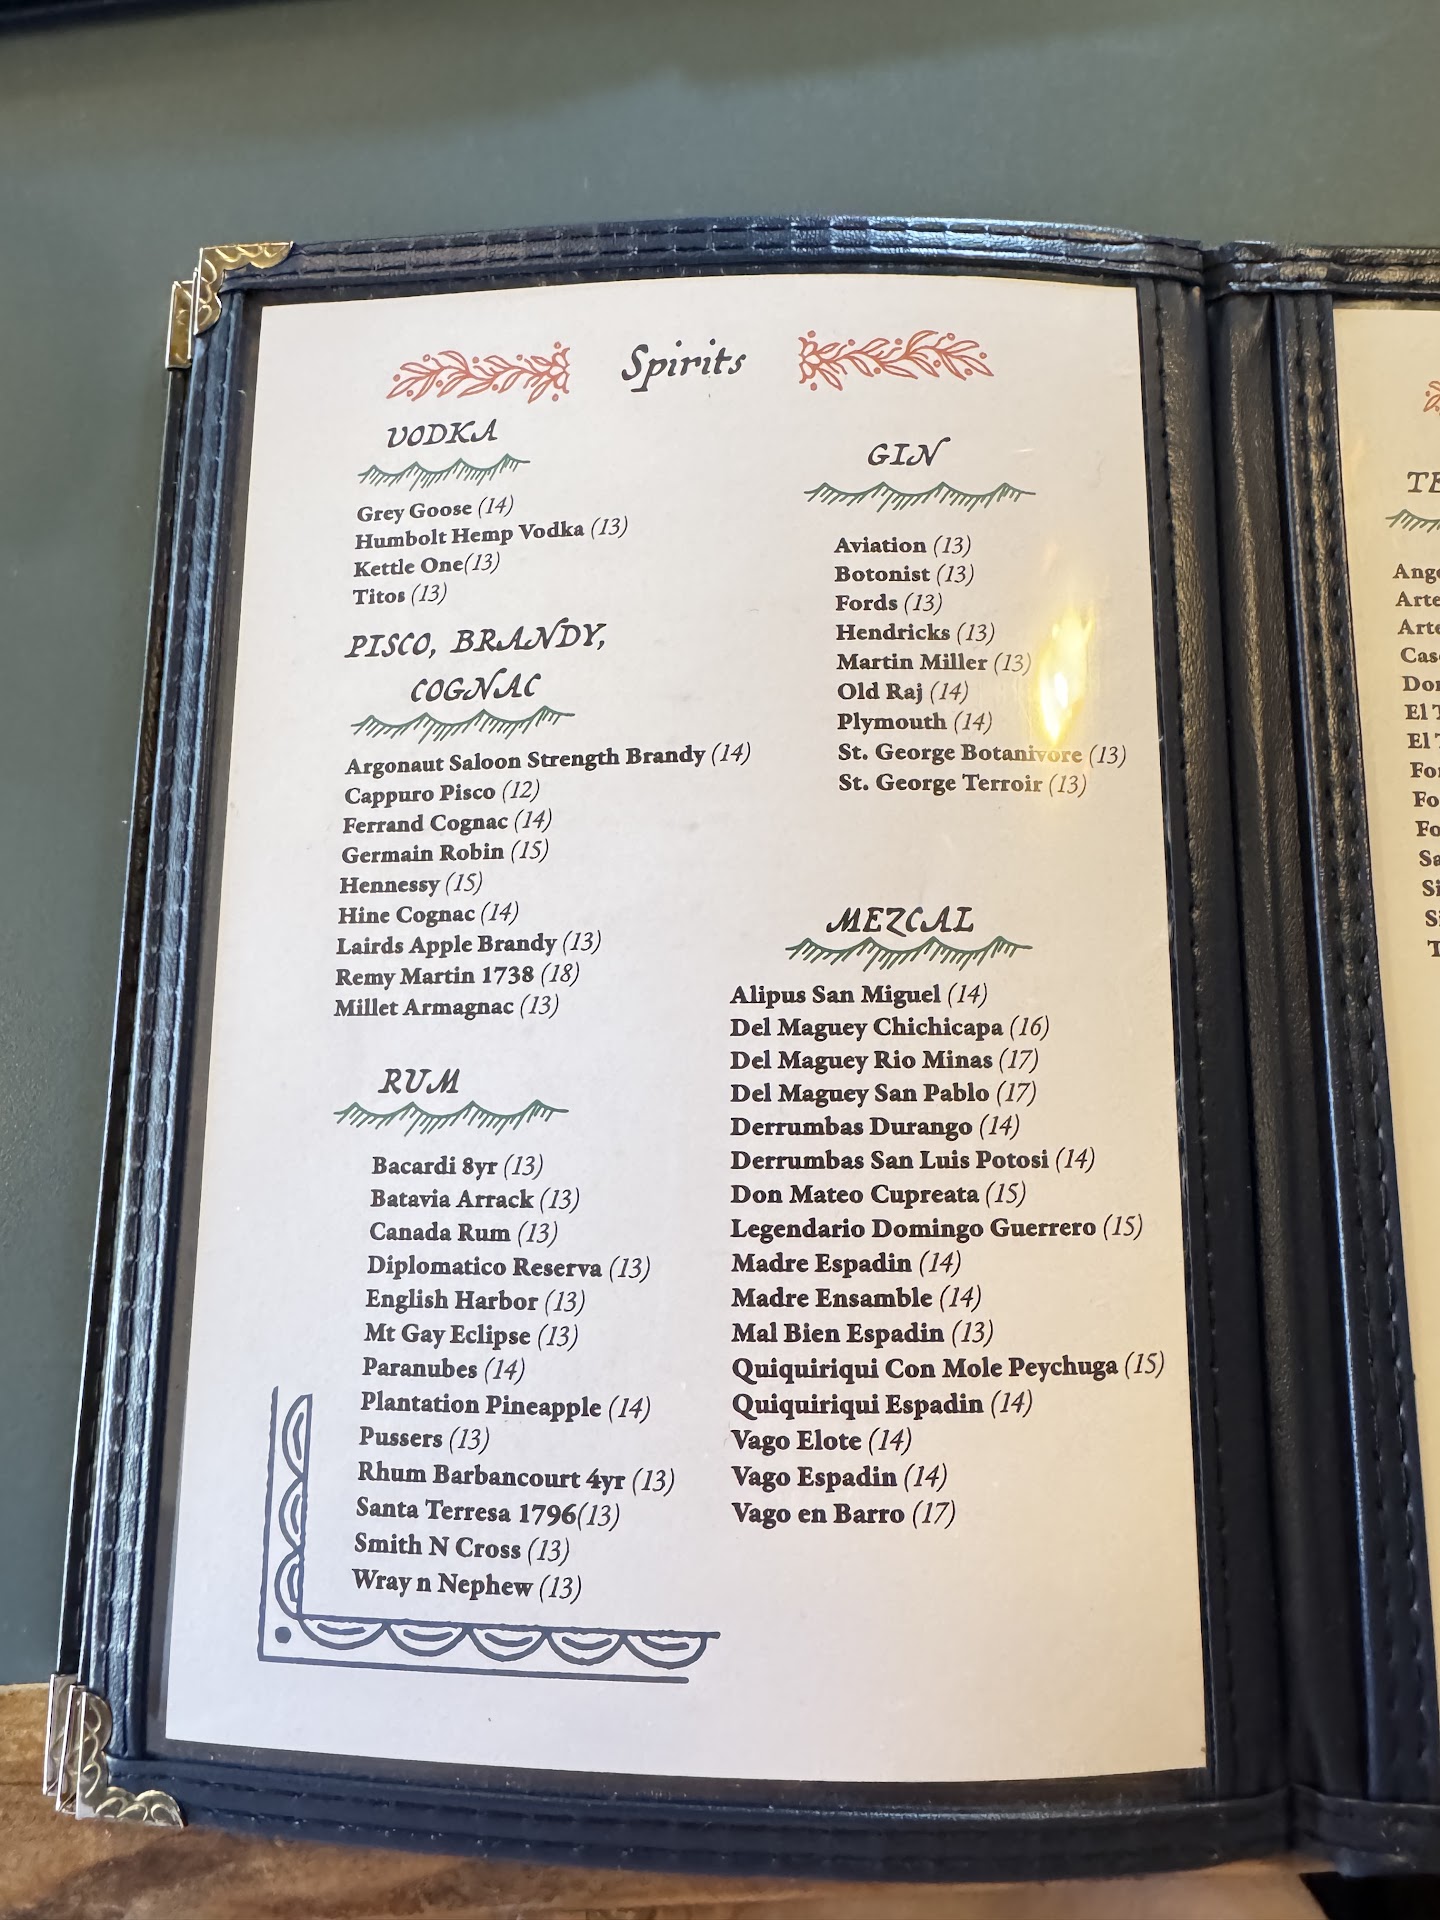 Spirits
VODKA
Grey Goose (14)
Humbolt Hemp Vodka (13)
Kettle One(13)
Titos (13)
PISCO, BRANDY,
COGNAC
Argonaut Saloon Strength Brandy (14)
Cappuro Pisco (12)
Ferrand Cognac (14)
Germain Robin (15)
Hennessy (15)
Hine Cognac (14)
Lairds Apple Brandy (13)
Remy Martin 1738 (18)
Millet Armagnac (13)
RUM
Bacardi 8yr (13)
Batavia Arrack (13)
Canada Rum (13)
Diplomatico Reserva (13)
English Harbor (13)
Mt Gay Eclipse (13)
Paranubes (14)
Plantation Pineapple (14)
Pussers (13)
Rhum Barbancourt 4yr (13)
Santa Terresa 1796(13)
Smith N Cross (13)
Wray n Nephew (13)
GIN
Aviation (13)
Botonist (13)
Fords (13)
Hendricks (13)
Martin Miller (13)
Old Raj (14)
Plymouth (14)
St. George Botanivore (13)
St. George Terroir (13)
MEZCAL
Alipus San Miguel (14)
Del Maguey Chichicapa (16)
Del Maguey Rio Minas (17)
Del Maguey San Pablo (17)
Derrumbas Durango (14)
Derrumbas San Luis Potosi (14)
Don Mateo Cupreata (15)
Legendario Domingo Guerrero (15)
Madre Espadin (14)
Madre Ensamble (14)
Mal Bien Espadin (13)
Quiquiriqui Con Mole Peychuga (15)
Quiquiriqui Espadin (14)
Vago Elote (14)
Vago Espadin (14)
Vago en Barro (17)